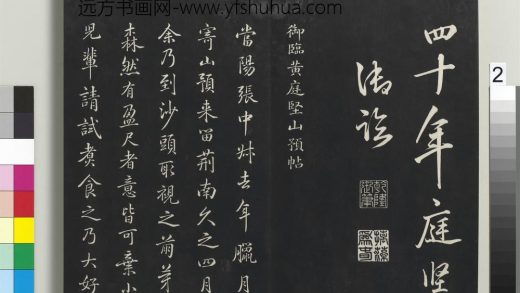 远方书画网-www.yfshuhua.com
四十年庭坚
御临
御臨黄庭堅山預帖
當陽張中叔去年臘月
寄山預来留荆南久之四月
余乃到沙頭取視之萌芽
森然有盈尺者意皆可棄小
児軰請試煑食之乃大好
2